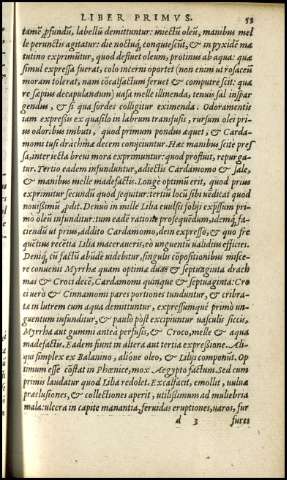 LIBER PRIMVS. 53
tamē ꝓfundū, labellū demittuntur: iniectū oleū, manibus mel
le perunctis agitatur: die noctuq́ꝫ conquiescit, & in pyxidē ma
tutino exprimitur, quod defluet oleum, protinus ab aqua: qua
simul expressa fuerat, colo incerni oportet (non enim ut rosaceū
moram tolerat, nam cōcalfactum feruet & computrescit: qua
re sæpius decapulandum) uasa melle illinenda, tenuis sal inspar
gendus, & si qua sordes colligitur eximenda. Odoramentis
iam expressis ex quasillo in labrum transfusis, rursum olei pri
us odoribus imbuti, quod primum pondus æquet, & Carda-
momi tusi drachmæ decem conijciuntur. Hæc manibus scite pres
sa, interiecta breui mora exprimuntur: quod profluit, repurga-
tur. Tertio eadem infunduntur, adiectis Cardamomo & sale,
& manibus melle madefactis. Longè optimū erit, quod prius
exprimitur secundū quod sequitur: tertiū uerò sibi uēdicat quod
nouissimū ijdē. Denuò in mille Lilia euulsis folijs expissum pri
mò oleū infunditur: tum eadē ratiōe prosequēdum, idemq́ꝫ fa-
ciendū ut prius, addito Cardamomo, dein expresso, & quo fre
quētius recētia Lilia maceraueris, eò unguentū ualidius efficies.
Deniq́ꝫ cū factū abūde uidebitur, singulis cōpositionibus misce-
re conuenit Myrrhæ quam optimæ duas & septuaginta drach
mas & Croci decē. Cardamomi quinque & septuaginta: Cro
ci uerò & Cinnamomi pares portiones tunduntur, & cribra-
ta in lutrem cum aqua demittuntur, expressumque primò un-
guentum infunditur, & paulò pōst excipiuntur uasculis siccis,
Myrrha aut gummi antea perfusis, & Croco, melle & aqua
madefactis. Eadem fiunt in altera aut tertia expressione. Ali-
qui simplex ex Balanino, aliōue oleo, & Lilijs componūt. Op
timum esse cōstat in Phœnice, mox Ægypto factum. Sed cum
primis laudatur quod Lilia redolet. Excalfacit, emollit, uuluæ
præclusiones, & collectiones aperit, utilissimum ad muliebria
mala: ulcera in capite manantia, feruidas eruptiones, uaros, fur
d 3 fures